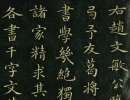 右趙文敏公
曷予友葛將
書學幾絕獨
諸家精求其
各書千字文